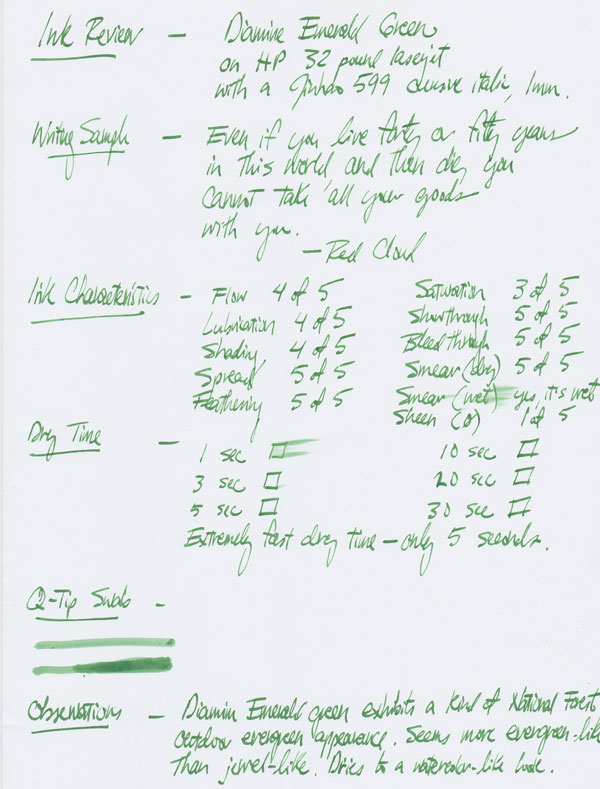 Ink Review — Diamine Emerald Green
on HP 32 pound laserjet
with a Jinhao 599 cursive italic, 1mm.
Writing Sample — Even if you live forty or fifty years
in this world and then die, you
cannot take all your goods
with you.
— Red Cloud
Ink Characteristics — Flow 4 of 5 Saturation 3 of 5
Lubrication 4 of 5 Showthrough 5 of 5
Shading 4 of 5 Bleedthrough 5 of 5
Spread 5 of 5 Smear (dry) 5 of 5
Feathering 5 of 5 Smear (wet) yes, it's wet
Sheen (0) 1 of 5
Dry Time — 1 sec 10 sec
3 sec 20 sec
5 sec 30 sec
Extremely fast dry time — only 5 seconds.
Q-Tip Swab —
Observations — Diamine Emerald green exhibits a kind of National Forest
outdoor evergreen appearance. Seems more evergreen-like
Than jewel-like. Dries to a watercolor-like look.